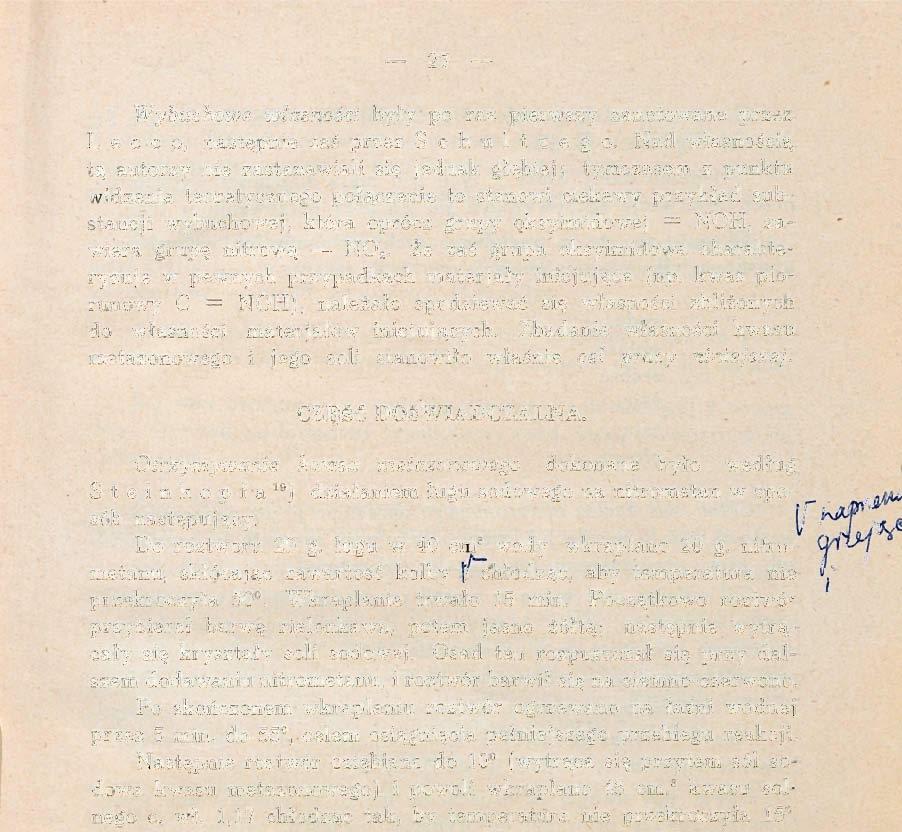 — 25 —
Wybuchowe własności były po raz pierwszy zanotowane przez
Lecco, następnie zaś przez Schultzego. Nad własnością
tą autorzy nie zastanawiali się jednak głębiej; tymczasem z punktu
widzenia teoretycznego połączenie to stanowi ciekawy przykład sub-
stancji wybuchowej, która oprócz grupy oksyimidowej = NOH, za-
wiera grupę nitrową — NO₂. Że zaś grupa oksyimidowa charakte-
ryzuje w pewnych przypadkach materjały inicjujące (np. kwas pio-
runowy C = NOH), należało spodziewać się własności zbliżonych
do własności materjałów inicjujących. Zbadanie własności kwasu
metazonowego i jego soli stanowiło właśnie cel pracy niniejszej.
CZĘŚĆ DOŚWIADCZALNA.
Otrzymywanie kwasu metazonowego dokonane było według
Steinkopfa ¹⁹) działaniem ługu sodowego na nitrometan w spo-
sób następujący.
Do roztworu 20 g. ługu w 40 cm³ wody wkraplano 20 g. nitro-
metanu, skłócając zawartość kolby i chłodząc, aby temperatura nie
przekroczyła 50°. Wkraplanie trwało 15 min. Początkowo roztwór
przybierał barwę zielonkawą, potem jasno żółtą; następnie wytrą-
cały się kryształy soli sodowej. Osad ten rozpuszczał się przy dal-
szem dodawaniu nitrometanu, i roztwór barwił się na ciemno-czerwono.
Po skończonem wkraplaniu roztwór ogrzewano na łaźni wodnej
przez 5 min. do 55°, celem osiągnięcia pełniejszego przebiegu reakcji.
Następnie roztwór oziębiano do 10° (wytrąca się przytem sól so-
dowa kwasu metazonowego) i powoli wkraplano 45 cm.³ kwasu sol-
nego c. wł. 1,17 chłodząc tak, by temperatura nie przekroczyła 15°